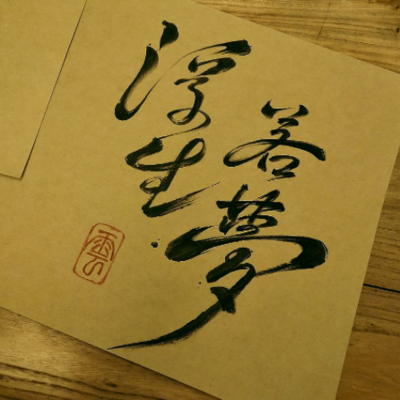 浮生
若夢
雲